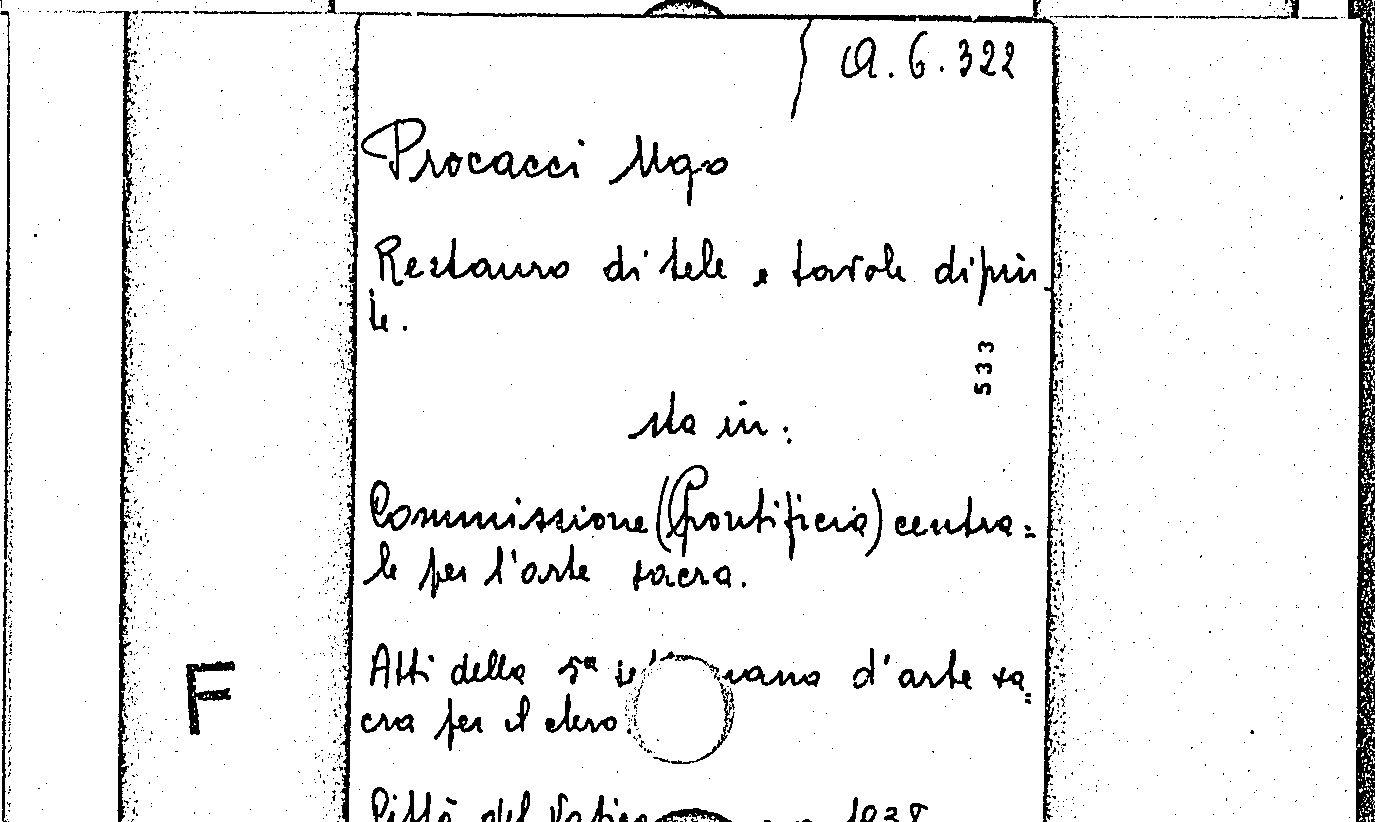 A.6.322
Procacci Ugo
Restauro di tele e tavole dipin-
te.
533
sta in:
Commissione (Pontificia) centra=
le per l'arte sacra.
Atti della 5ª d'arte sa=
cra per il clero.
F
Città del 1938